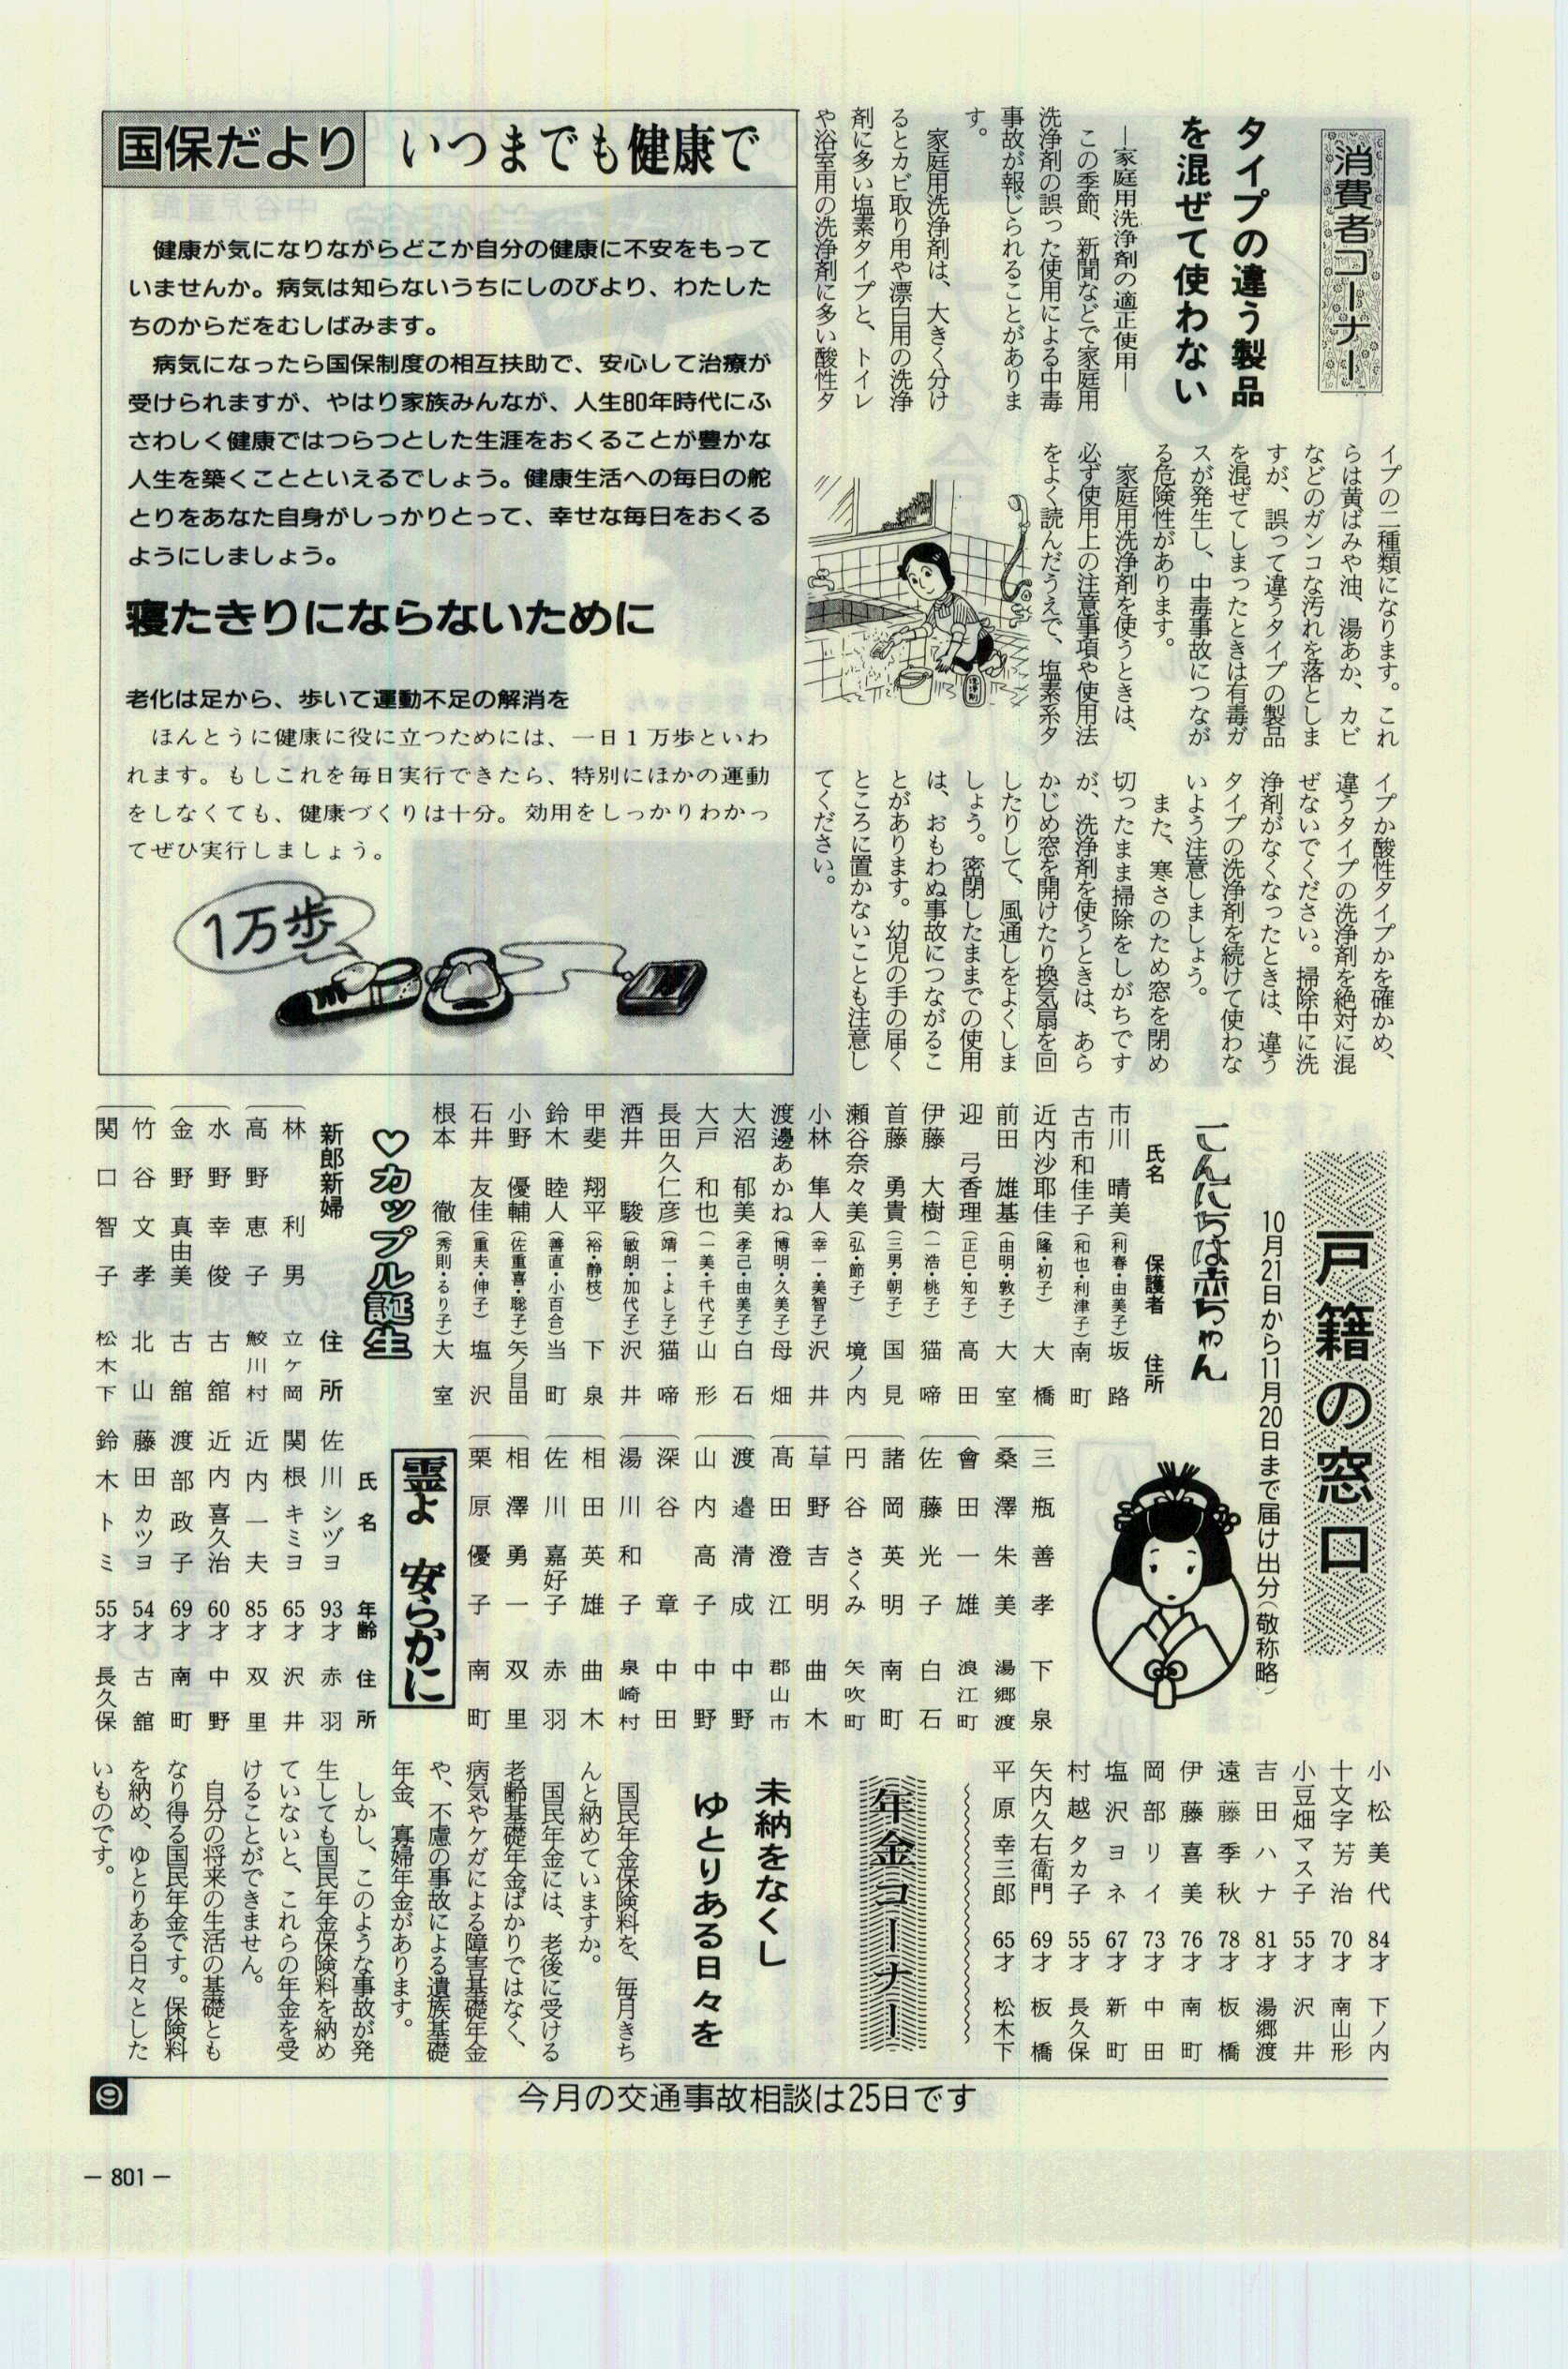 消費者コーナー
タイプの違う製品
を混ぜて使わない
―家庭用洗浄剤の適正使用―
この季節、新聞などで家庭用
洗浄剤の誤った使用による中毒
事故が報じられることがありま
す。
家庭用洗浄剤は、大きく分け
るとカビ取り用や漂白用の洗浄
剤に多い塩素タイプと、トイレ
や浴室用の洗浄剤に多い酸性タ
イプの二種類になります。これ
らは黄ばみや油、湯あか、カビ
などのガンコな汚れを落としま
すが、誤って違うタイプの製品
を混ぜてしまったときは有毒ガ
スが発生し、中毒事故につなが
る危険性があります。
家庭用洗浄剤を使うときは、
必ず使用上の注意事項や使用法
をよく読んだうえで、塩素系タ
イプか酸性タイプかを確かめ、
違うタイプの洗浄剤を絶対に混
ぜないでください。掃除中に洗
浄剤がなくなったときは、違う
タイプの洗浄剤を続けて使わな
いよう注意しましょう。
また、寒さのため窓を閉め
切ったまま掃除をしがちです
が、洗浄剤を使うときは、あら
かじめ窓を開けたり換気扇を回
したりして、風通しをよくしま
しょう。密閉したままでの使用
は、おもわぬ事故につながるこ
とがあります。幼児の手の届く
ところに置かないことも注意し
てください。
国保だより いつまでも健康で
健康が気になりながらどこか自分の健康に不安をもって
いませんか。病気は知らないうちにしのびより、わたした
ちのからだをむしばみます。
病気になったら国保制度の相互扶助で、安心して治療が
受けられますが、やはり家族みんなが、人生80年時代にふ
さわしく健康ではつらつとした生涯をおくることが豊かな
人生を築くことといえるでしょう。健康生活への毎日の舵
とりをあなた自身がしっかりとって、幸せな毎日をおくる
ようにしましょう。
寝たきりにならないために
老化は足から、歩いて運動不足の解消を
ほんとうに健康に役に立つためには、一日1万歩といわ
れます。もしこれを毎日実行できたら、特別にほかの運動
をしなくても、健康づくりは十分。効用をしっかりわかっ
てぜひ実行しましょう。
1万歩
戸籍の窓口
10月21日から11月20日まで届け出分(敬称略)
こんにちは赤ちゃん
氏名 保護者 住所
市川 晴美(利春・由美子)坂路
古市和佳子(和也・利津子)南町
近内沙耶佳(隆・初子)大橋
前田 雄基(由明・敦子)大室
迎 弓香理(正巳・知子)高田
伊藤 大樹(一浩・桃子)猫啼
首藤 勇貴(三男・朝子)国見
瀬谷奈々美(弘・節子)境ノ内
小林 隼人(幸一・美智子)沢井
渡邊あかね(博明・久美子)母畑
大沼 郁美(孝己・由美子)白石
大戸 和也(一美・千代子)山形
長田久仁彦(靖一・よし子)猫啼
酒井 駿(敏朗・加代子)沢井
甲斐 翔平(裕・静枝)下泉
鈴木 睦人(善直・小百合)当町
小野 優輔(佐重喜・聡子)矢ノ目田
石井 友佳(重夫・伸子)塩沢
根本 徹(秀則・るり子)大室
♡カップル誕生
新郎新婦 住所
林 利男 立ケ岡
高野 恵子 鮫川村
水野 幸俊 古舘
金野 真由美 古舘
竹谷 文孝 北山
関口 智子 松木下
三瓶 善孝 下泉
桑澤 朱美 湯郷渡
會田 一雄 浪江町
佐藤 光子 白石
諸岡 英明 南町
円谷 さくみ 矢吹町
草野 吉明 曲木
髙田 澄江 郡山市
渡邉 清成 中野
山内 高子 中野
深谷 章 中田
湯川 和子 泉崎村
相田 英雄 曲木
佐川 嘉好子 赤羽
相澤 勇一 双里
栗原 優子 南町
霊よ 安らかに
氏名 年齢 住所
佐川シヅヨ 93才 赤羽
関根キミヨ 65才 沢井
近内一夫 85才 双里
近内喜久治 60才 中野
渡部政子 69才 南町
藤田カツヨ 54才 古舘
鈴木トミ 55才 長久保
小松美代 84才 下ノ内
十文字芳治 70才 南山形
小豆畑マス子 55才 沢井
吉田ハナ 81才 湯郷渡
遠藤季秋 78才 板橋
伊藤喜美 76才 南町
岡部リイ 73才 中田
塩沢ヨネ 67才 新町
村越タカ子 55才 長久保
矢内久右衛門 69才 板橋
平原幸三郎 65才 松木下
年金コーナー
未納をなくし
ゆとりある日々を
国民年金保険料を、毎月きち
んと納めていますか。
国民年金には、老後に受ける
老齢基礎年金ばかりではなく、
病気やケガによる障害基礎年金
や、不慮の事故による遺族基礎
年金、寡婦年金があります。
しかし、このような事故が発
生しても国民年金保険料を納め
ていないと、これらの年金を受
けることができません。
自分の将来の生活の基礎とも
なり得る国民年金です。保険料
を納め、ゆとりある日々とした
いものです。
今月の交通事故相談は25日です
⑨
― 801 ―